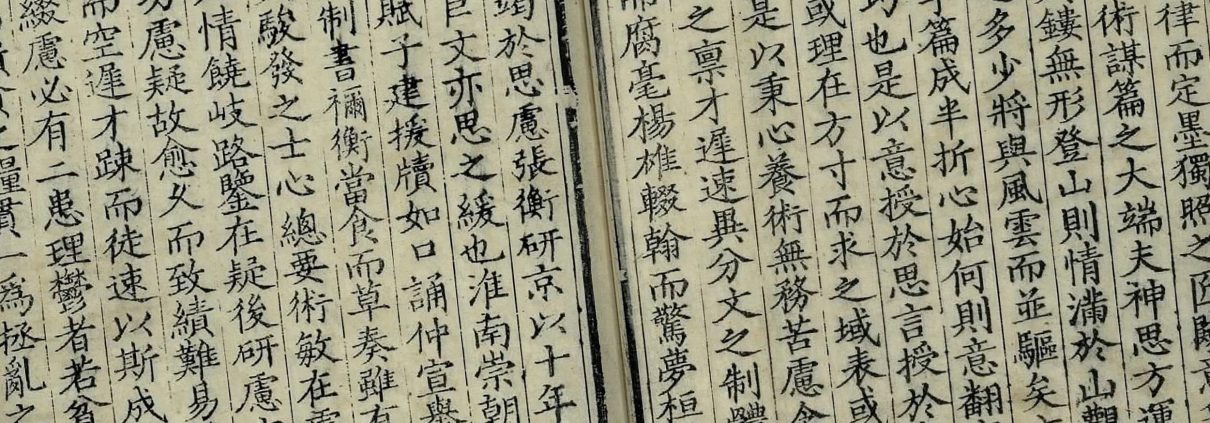 律而定墨獨照之匠闚意
術謀篇之大端夫神思方運
鏤無形登山則情滿於山觀
之多少將與風雲而並驅矣
篇成半折心始何則意翻
也是以意授於思言授於
或理在方寸而求之域表或
是以秉心養術無務苦慮含
之禀才遲速異分文之制體
腐毫楊雄輟翰而驚夢桓
於思慮張衡研京以十年
巨文亦思之緩也淮南崇朝
賦子建援牘如口誦仲宣舉
制書禰衡當食而草奏雖有
駿發之士心總要術敏在慮
情饒岐路鑒在疑後研慮
慮疑故愈久而致績難易
而空遲才踈而徒速以斯成
綴慮必有二患理鬱者若貧
之量貫一為拯亂之